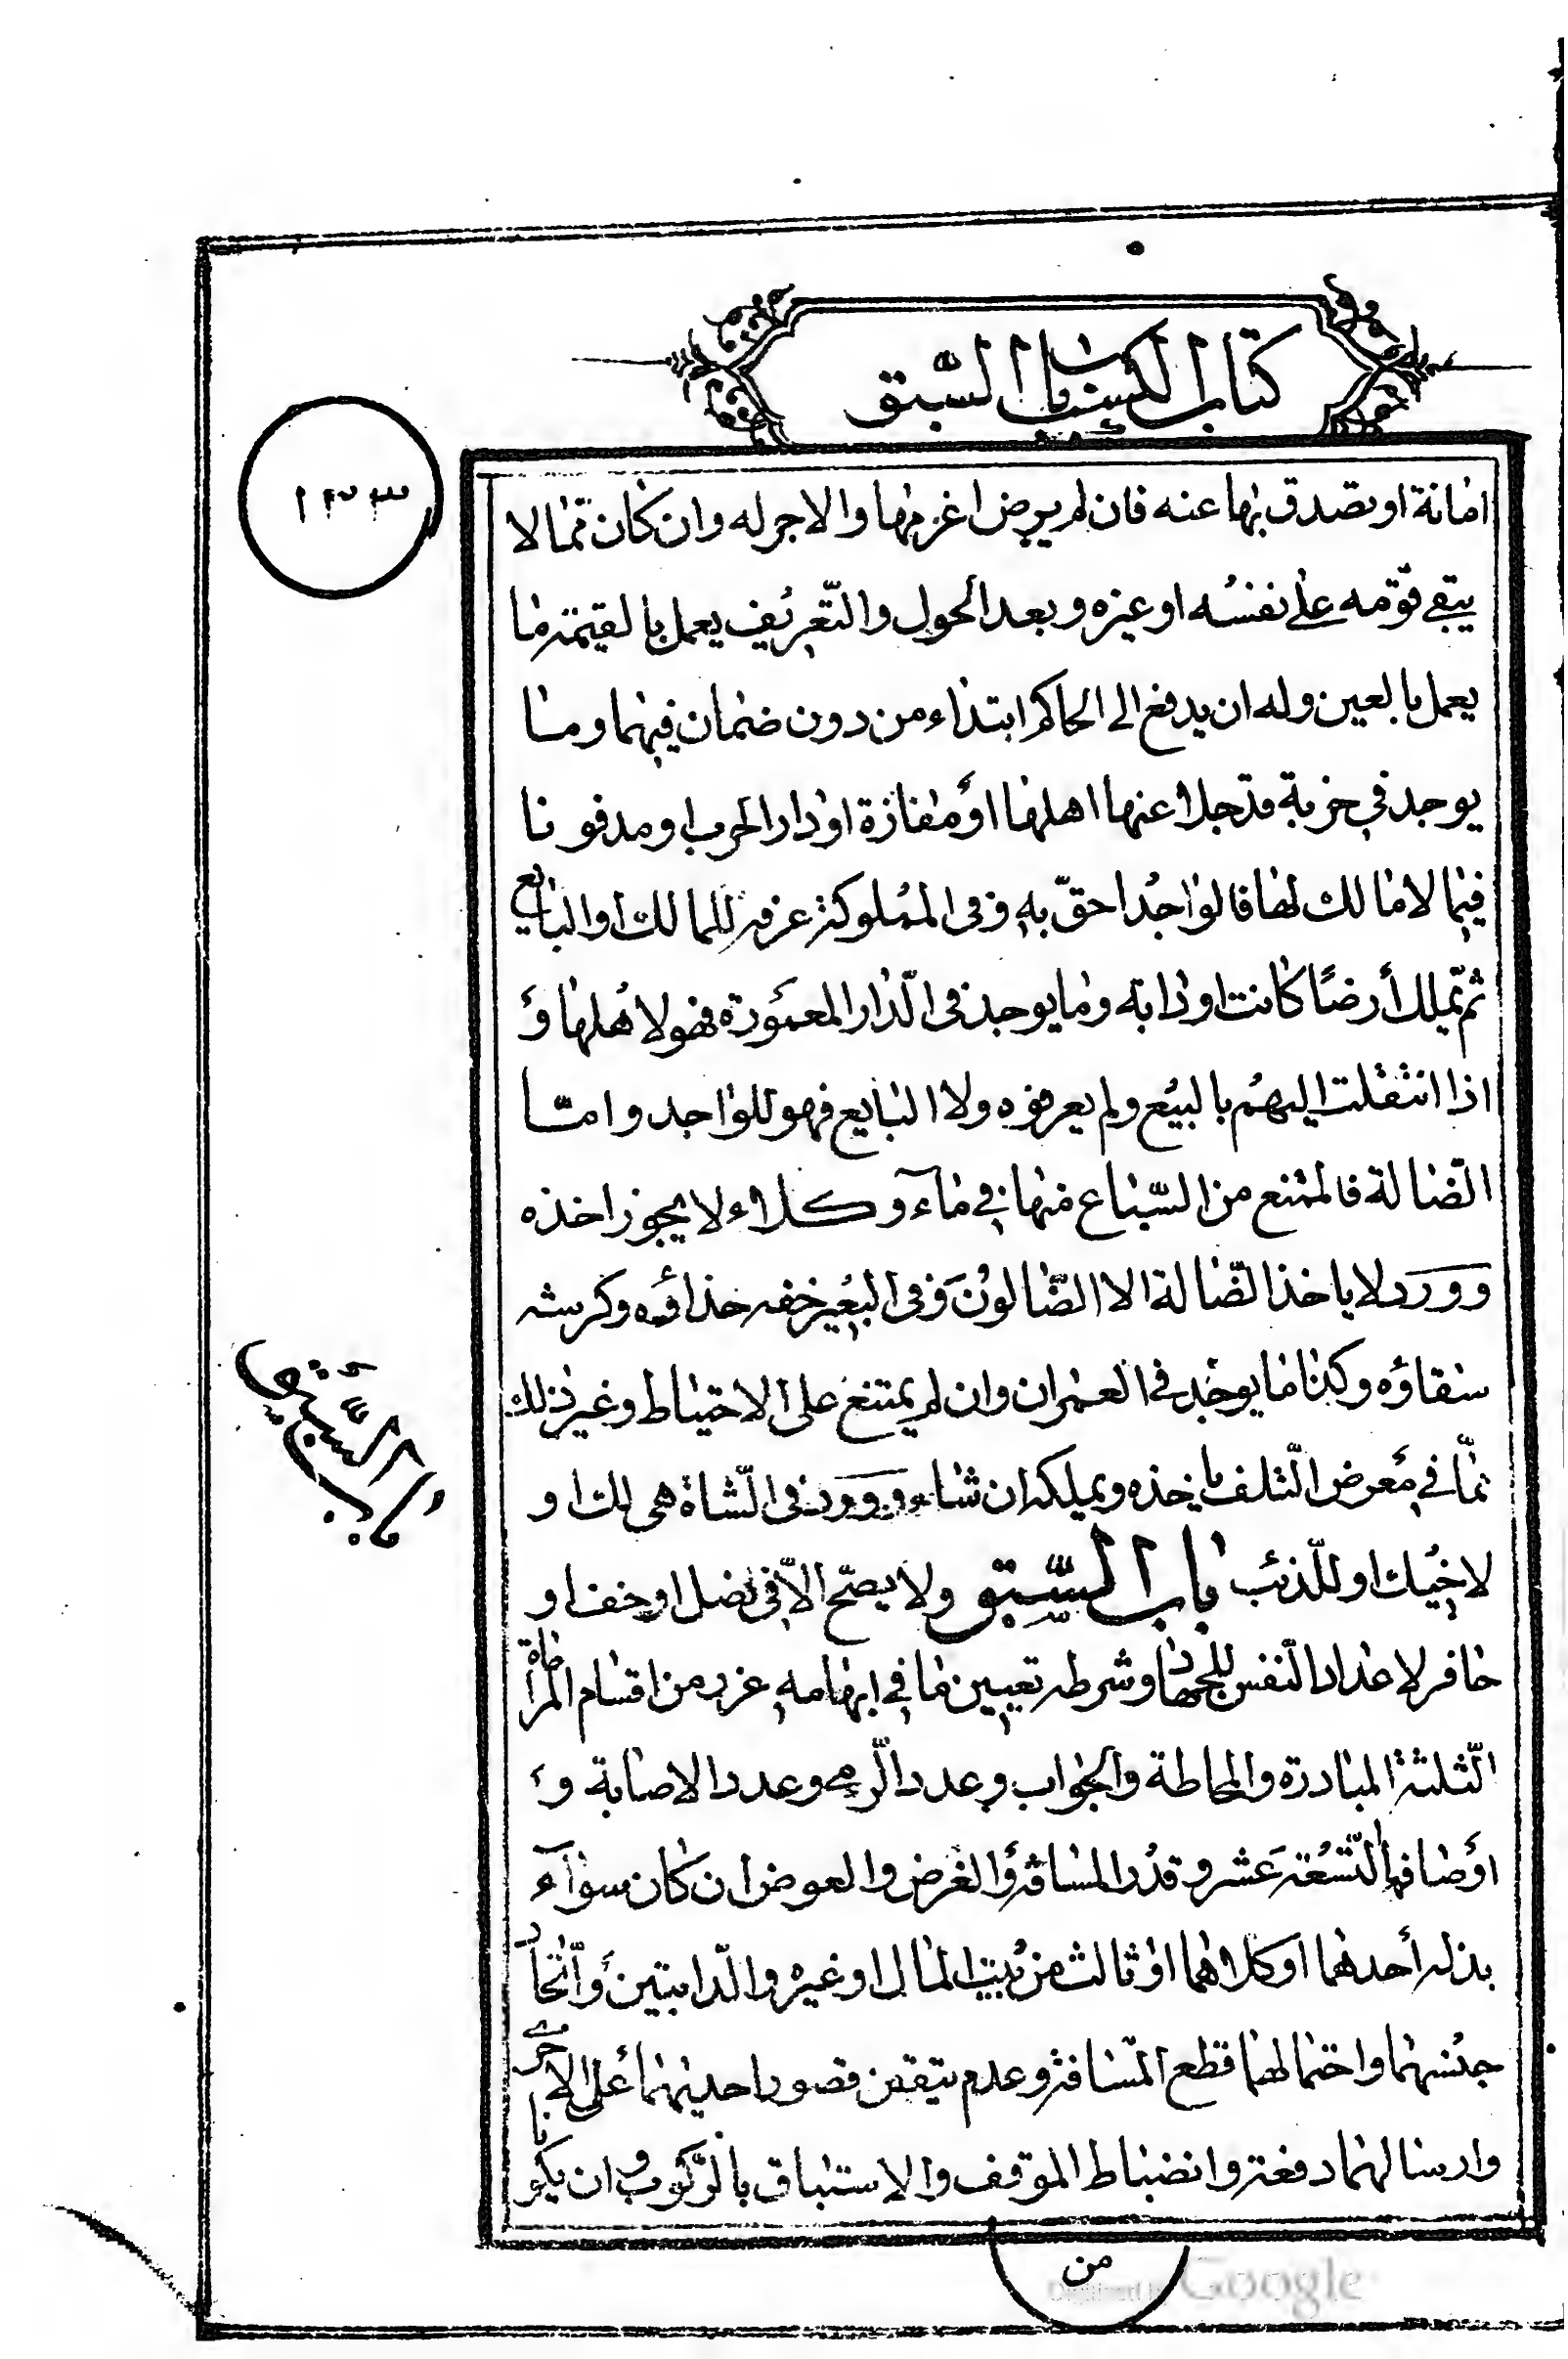 كتاب المكاسب باب السّبق
١٣٣
امانة او تصدق بها عنه فان لم يرض اغرمها والا اجر له وان كان ممّا لا
يبقى قوّمه على نفسه او غيره وبعد الحول والتّعريف يعمل بالقيمة ما
يعمل بالعين وله ان يدفع الى الحاكم ابتداء من دون ضمان فيهما وما
يوجد في خربة قد جلا عنها اهلها او مفازة او دار الحرب او مدفونا
فيما لا مالك لها فالواجد احقّ به وفى المملوكة عرفه للمالك او البايع
ثم تملك أرضًا كانت او دابة وما يوجد فى الدّار المعمورة فهو لاهلها و
اذا انتقلت اليهم بالبيع ولم يعرفوه ولا البايع فهو للواجد وامّا
الضّالة فالممتنع من السّباع منها في مآء وكلاء لا يجوز اخذه
وورد لا ياخذ الضّالة الا الضّالون وفى البعير خفه حذاؤه وكرشه
سقاؤه وكذا ما يوجد في العمران وان لم يمتنع على الاحتياط وغير ذلك
ممّا في معرض التّلف ياخذه ويملكه ان شاء وورد فى الشّاة هى لك او
لاخيك او للذّئب باب السّبق ولا يصحّ الّا فى نصل او خف او
حافر لاعداد النّفس للجهاد وشرطه تعيين ما في ابهامه غرر من اقسام المراماة
الثّلثة المبادرة والمحاطة والحواب وعدد الرّمى وعدد الاصابة و
اوصافها التّسعة عشر وقدر المسافة والغرض والعوض ان كان سوآء
بذله أحدهما او كلاهما او ثالث من بيت المال او غيره والدّابتين واتّحاد
جنسهما واحتمالهما قطع المسافة وعدم تيقن قصور احديهما على الاخرى
وارسالهما دفعة وانضباط الموقف والاستباق بالرّكوب وان يكونا
باب السَّبَق
من
Digitized by Google